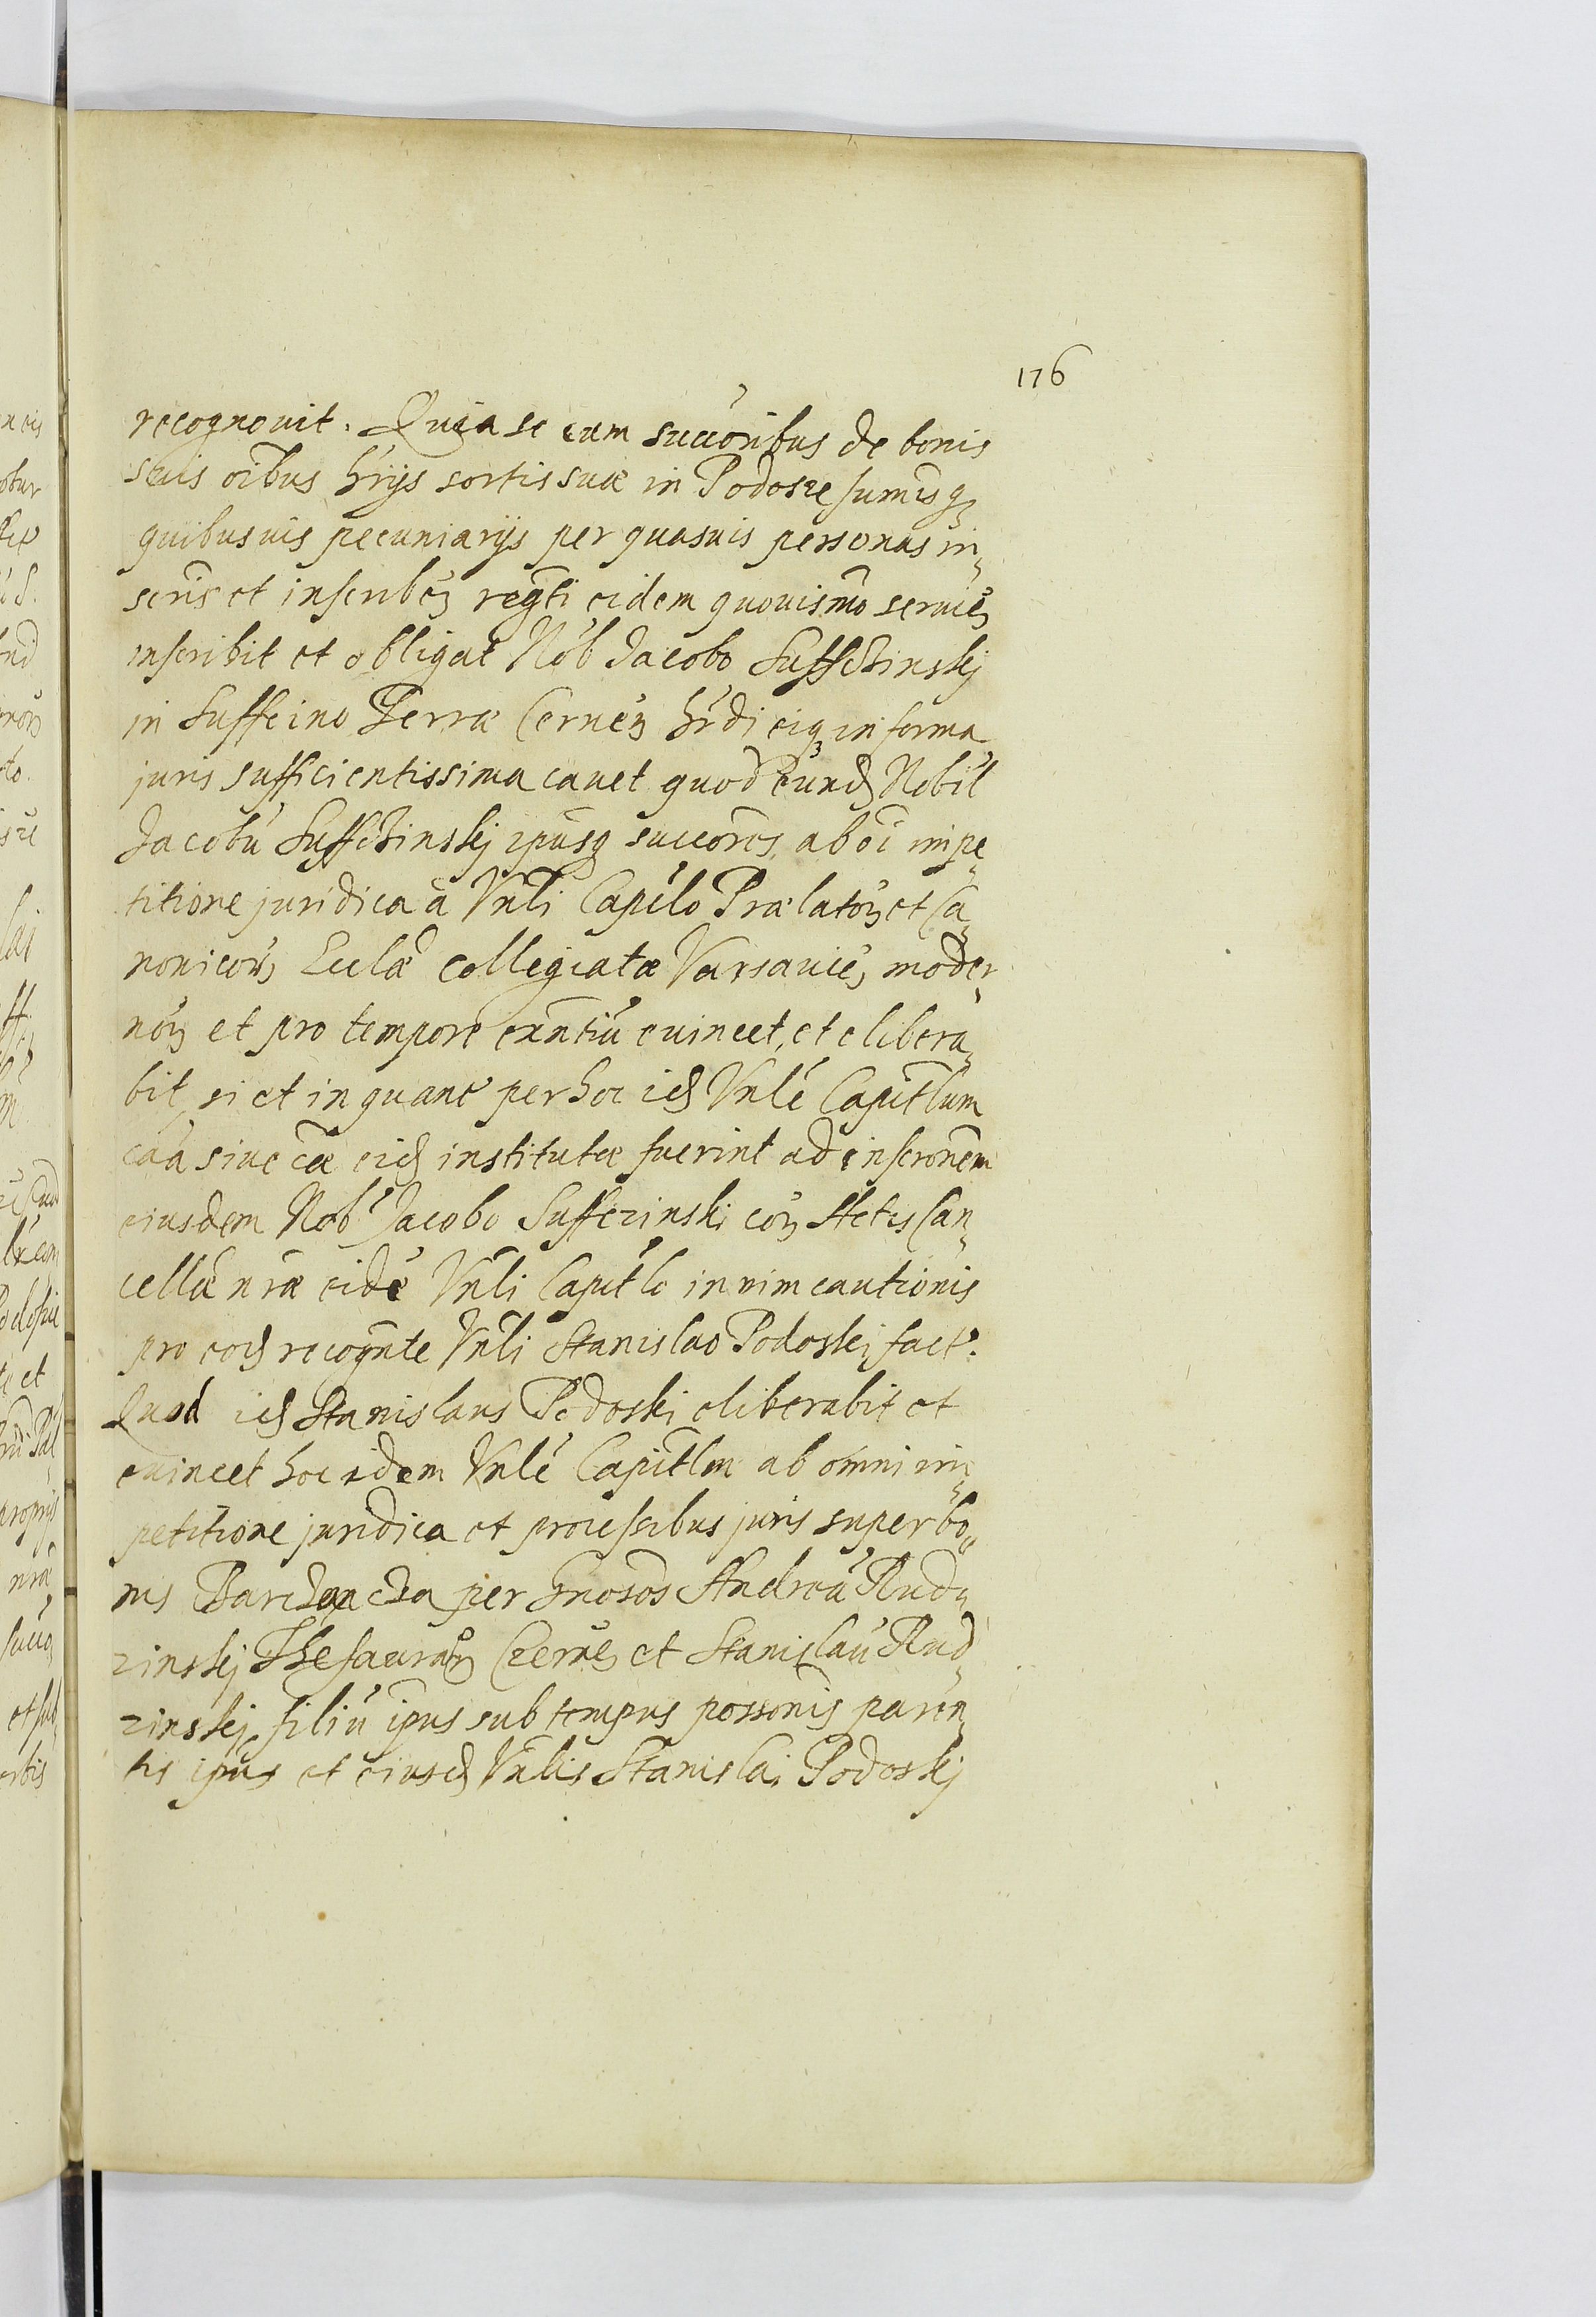 176
recognouit. Quia se cum succoribus de bonis
suis oibus hrijs sortis suæ in Podosie sumisq3
quibusuis pecuniarijs per quasuis personas in„
scris et inscriben regti eidem quouismo seruien
inscribit et obligat Nob Jacobo Suffchinskj
in Suffcino Terræ Cernen hrdi eiq3 in forma
juris sufficientissima cauet quod eund Nobil
Jacobu Suffchinskj ipusq succores ab oi impe„
titione juridica a Vnli Capilo Prælator et Ca„
nonicor Eclæ Collegiatæ Varsauien moder„
nor et pro tempore exntiu euincet, et elibera„
bit si et inquant per hoc id Vnle Capitlum
caa siue cæ eid institutæ fuerint ad inscronem
eiusdem Nob Jacobo Suffczinski cor Actis Can„
cellæ nræ eide Vnli Capitlo in uim cautionis
pro eod recognte Vnli Stanislao Podoskj fact.
Quod id Stanislaus Podoski eliberabit et
euincet hoc idem Vnle Capitlm ab omni im„
petitione juridica et processibus juris super bo„
nis per Gnosos Andreu Rud„
zinskj Thesaurar Czernen et Stanislau Rud„
zinskj filiu ipus sub tempus possonis paren„
tis ipus et eiusd Vnlis Stanislai Podoskj